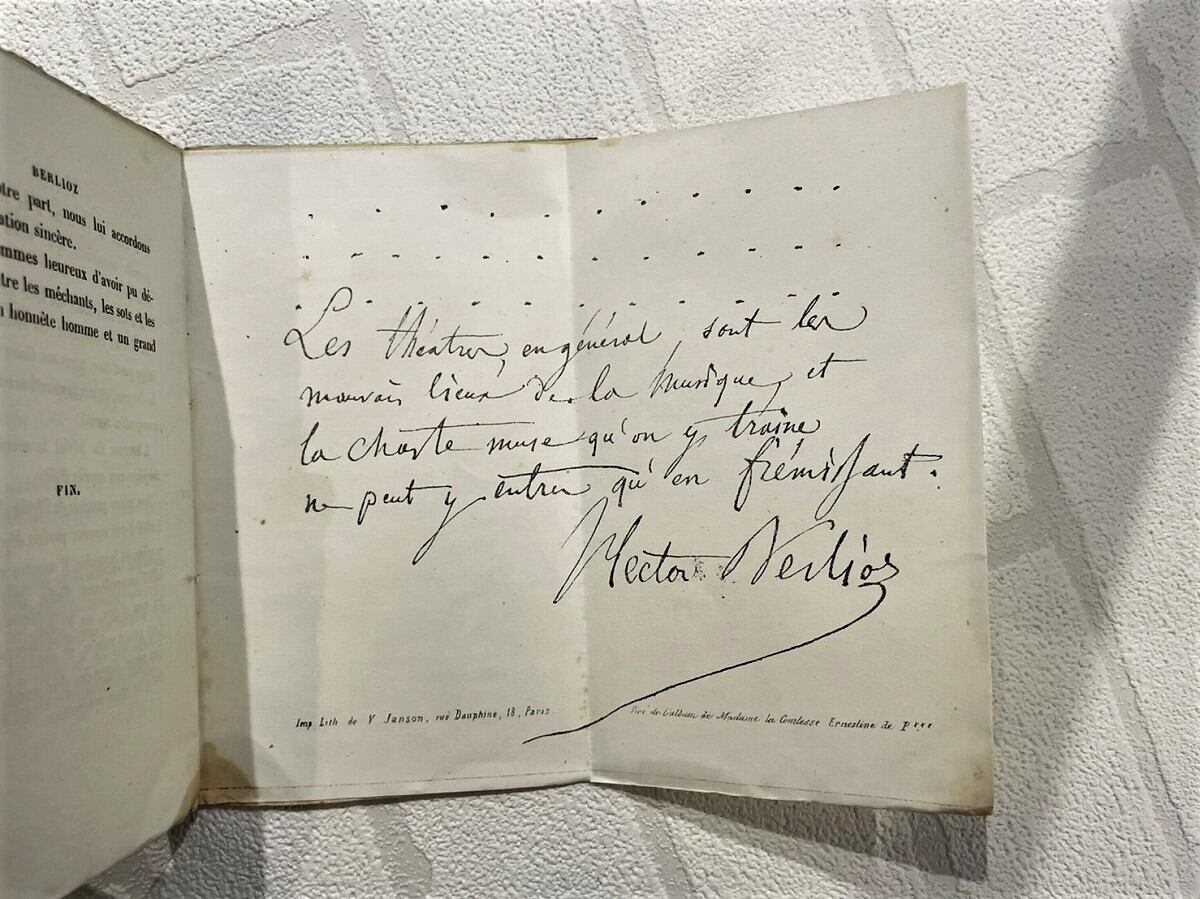 BERLIOZ
tre part, nous lui accordons
ation sincère.
mmes heureux d'avoir pu dé-
tre les méchants, les sots et les
n honnête homme et un grand
FIN.
Les théâtres, en général, sont les
mauvais lieux de la musique, et
la chaste muse qu'on y traîne
ne peut y entrer qu'en frémissant.
Hector Berlioz
Imp. Lith de V Janson, rue Dauphine, 18, Paris
Tiré de l'album de Madame la Comtesse Ernestine de P***